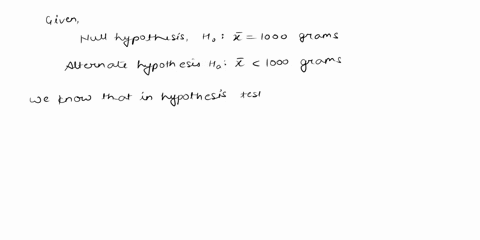 Given,
Null hypothesis, H₀ : x̄ = 1000 grams
Alternate hypothesis H₀ : x̄ < 1000 grams
We know that in hypothesis test